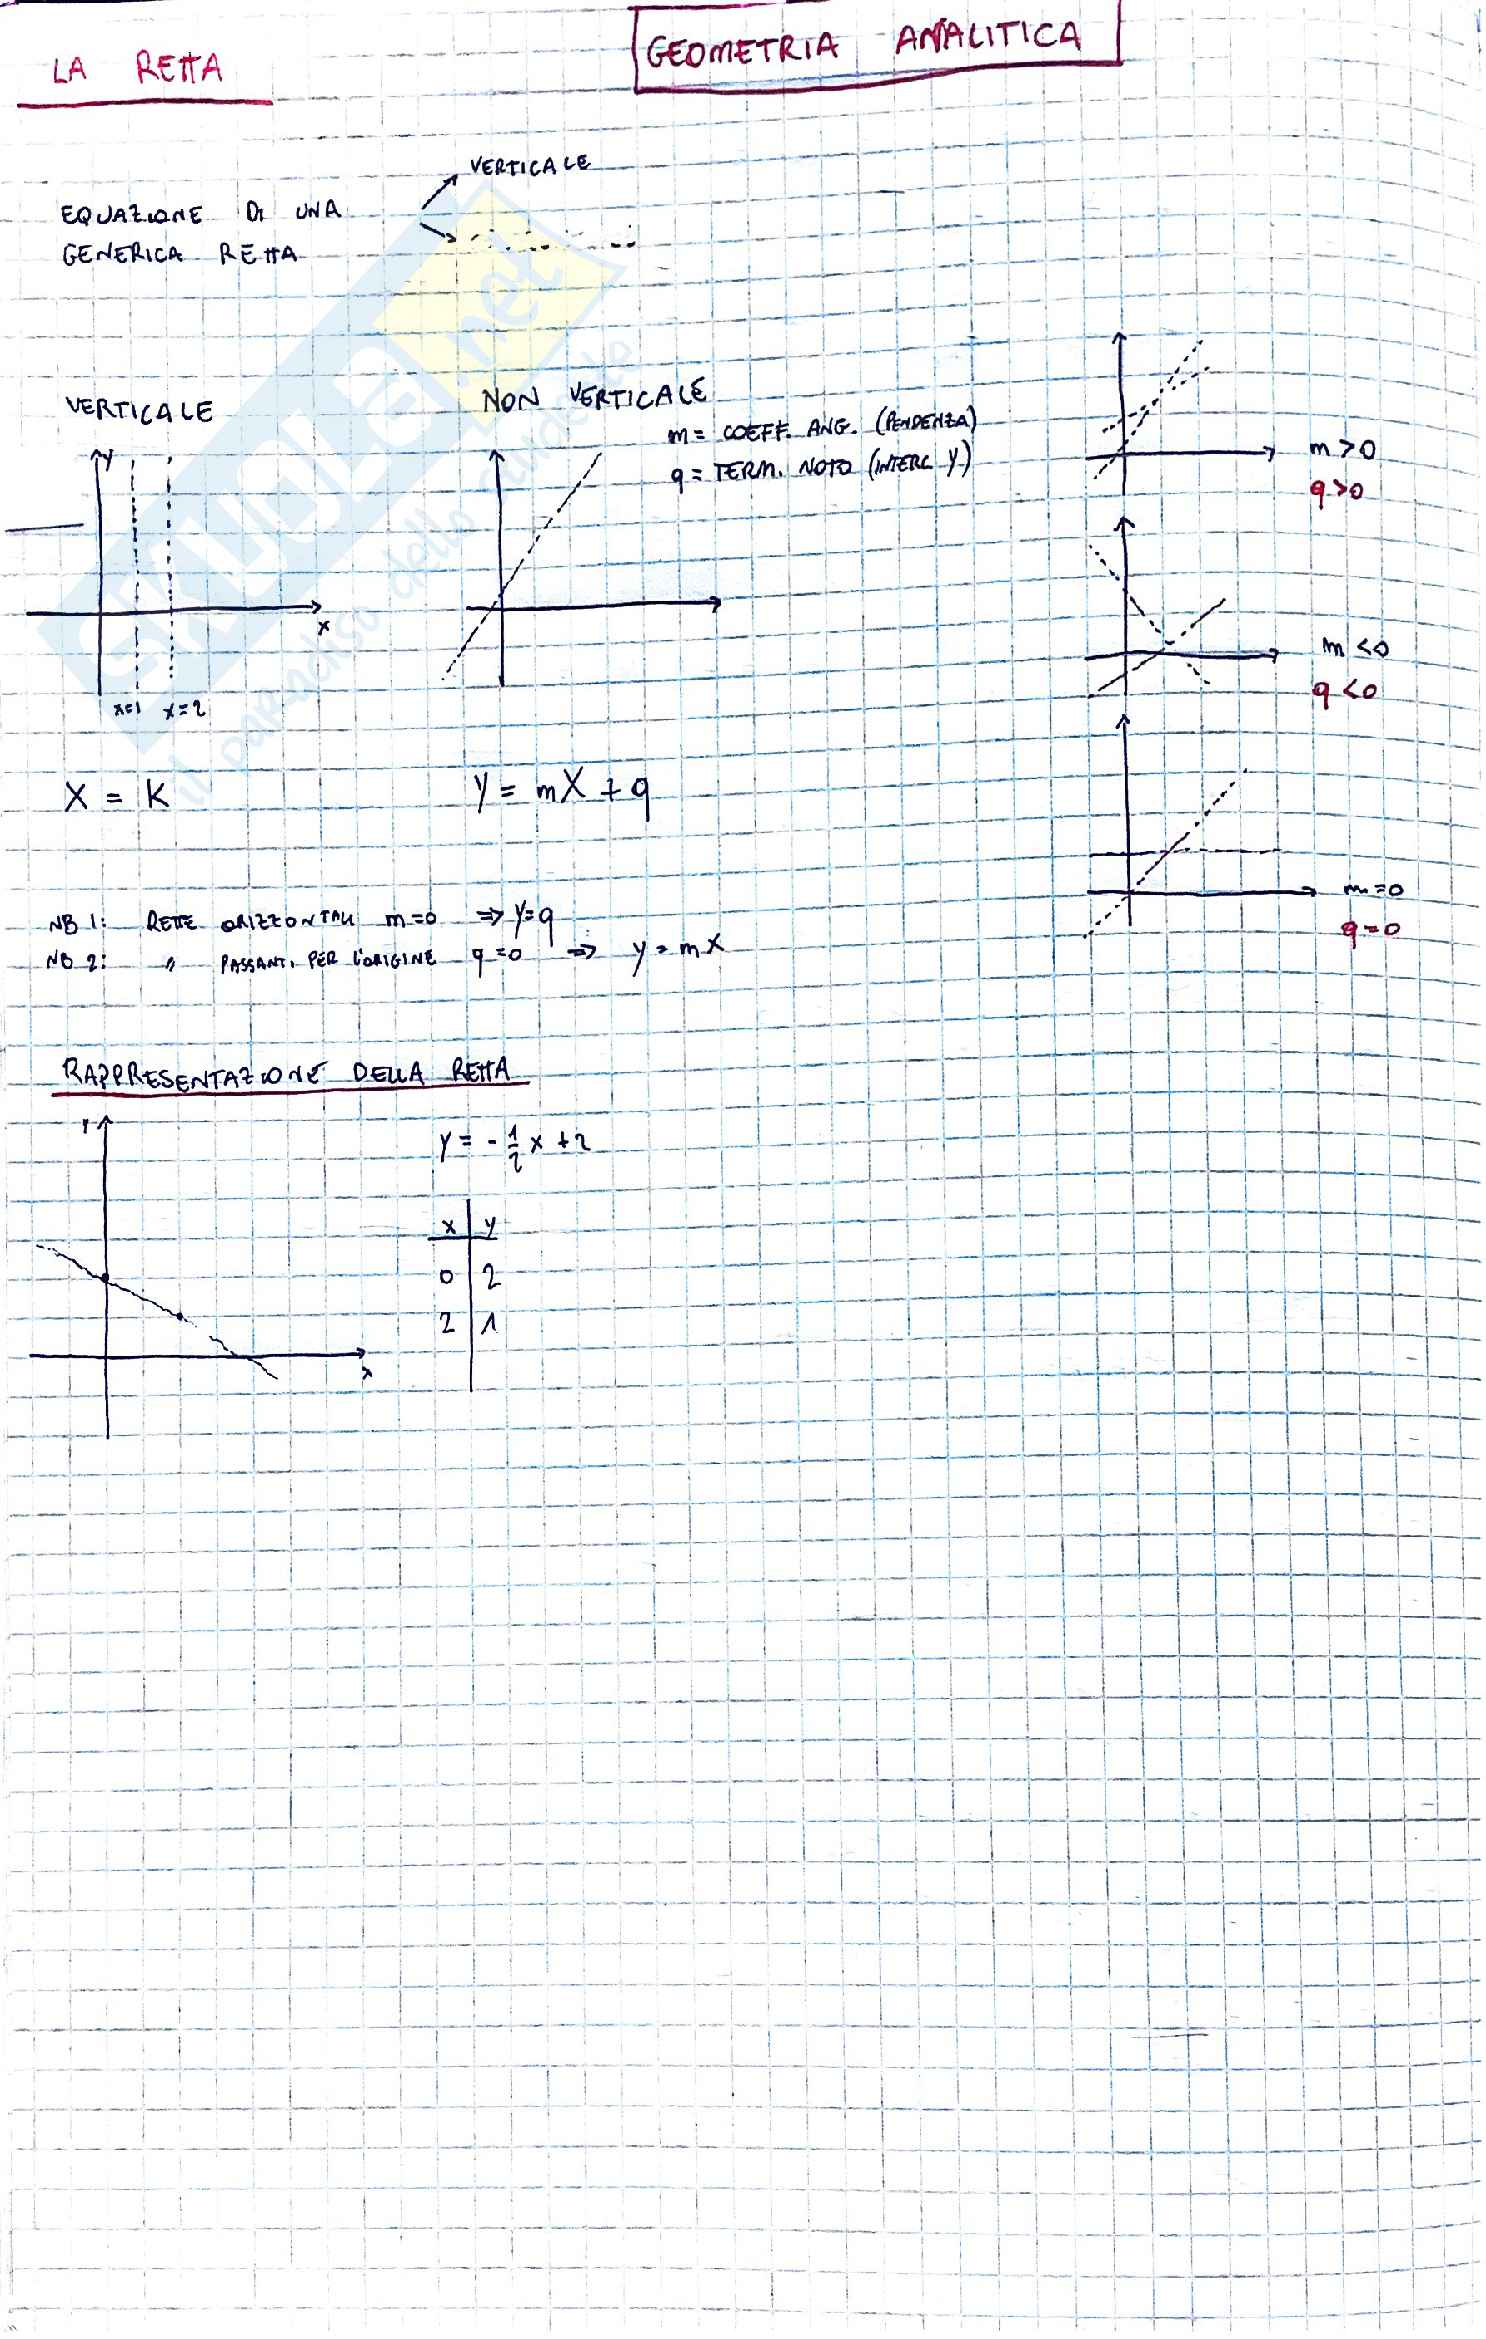 GEOMETRIA ANALITICA
LA RETTA
VERTICALE
EQUAZIONE DI UNA
GENERICA RETTA
VERTICALE
NON VERTICALE
m = COEFF. ANG. (PENDENZA)
q = TERM. NOTO (INTERC Y)
m > 0
q > 0
y
x
x=1 x=2
m < 0
q < 0
X = K
y = mX + q
m = 0
q = 0
NB 1: RETTE ORIZZONTALI m=0 ⇒ y=q
NB 2: " PASSANTI PER L'ORIGINE q=0 ⇒ y = mX
RAPPRESENTAZIONE DELLA RETTA
Y
y = - 1/2 x + 2
x y
0 2
2 1
x
SKUOLA.net
il paradiso dello studente